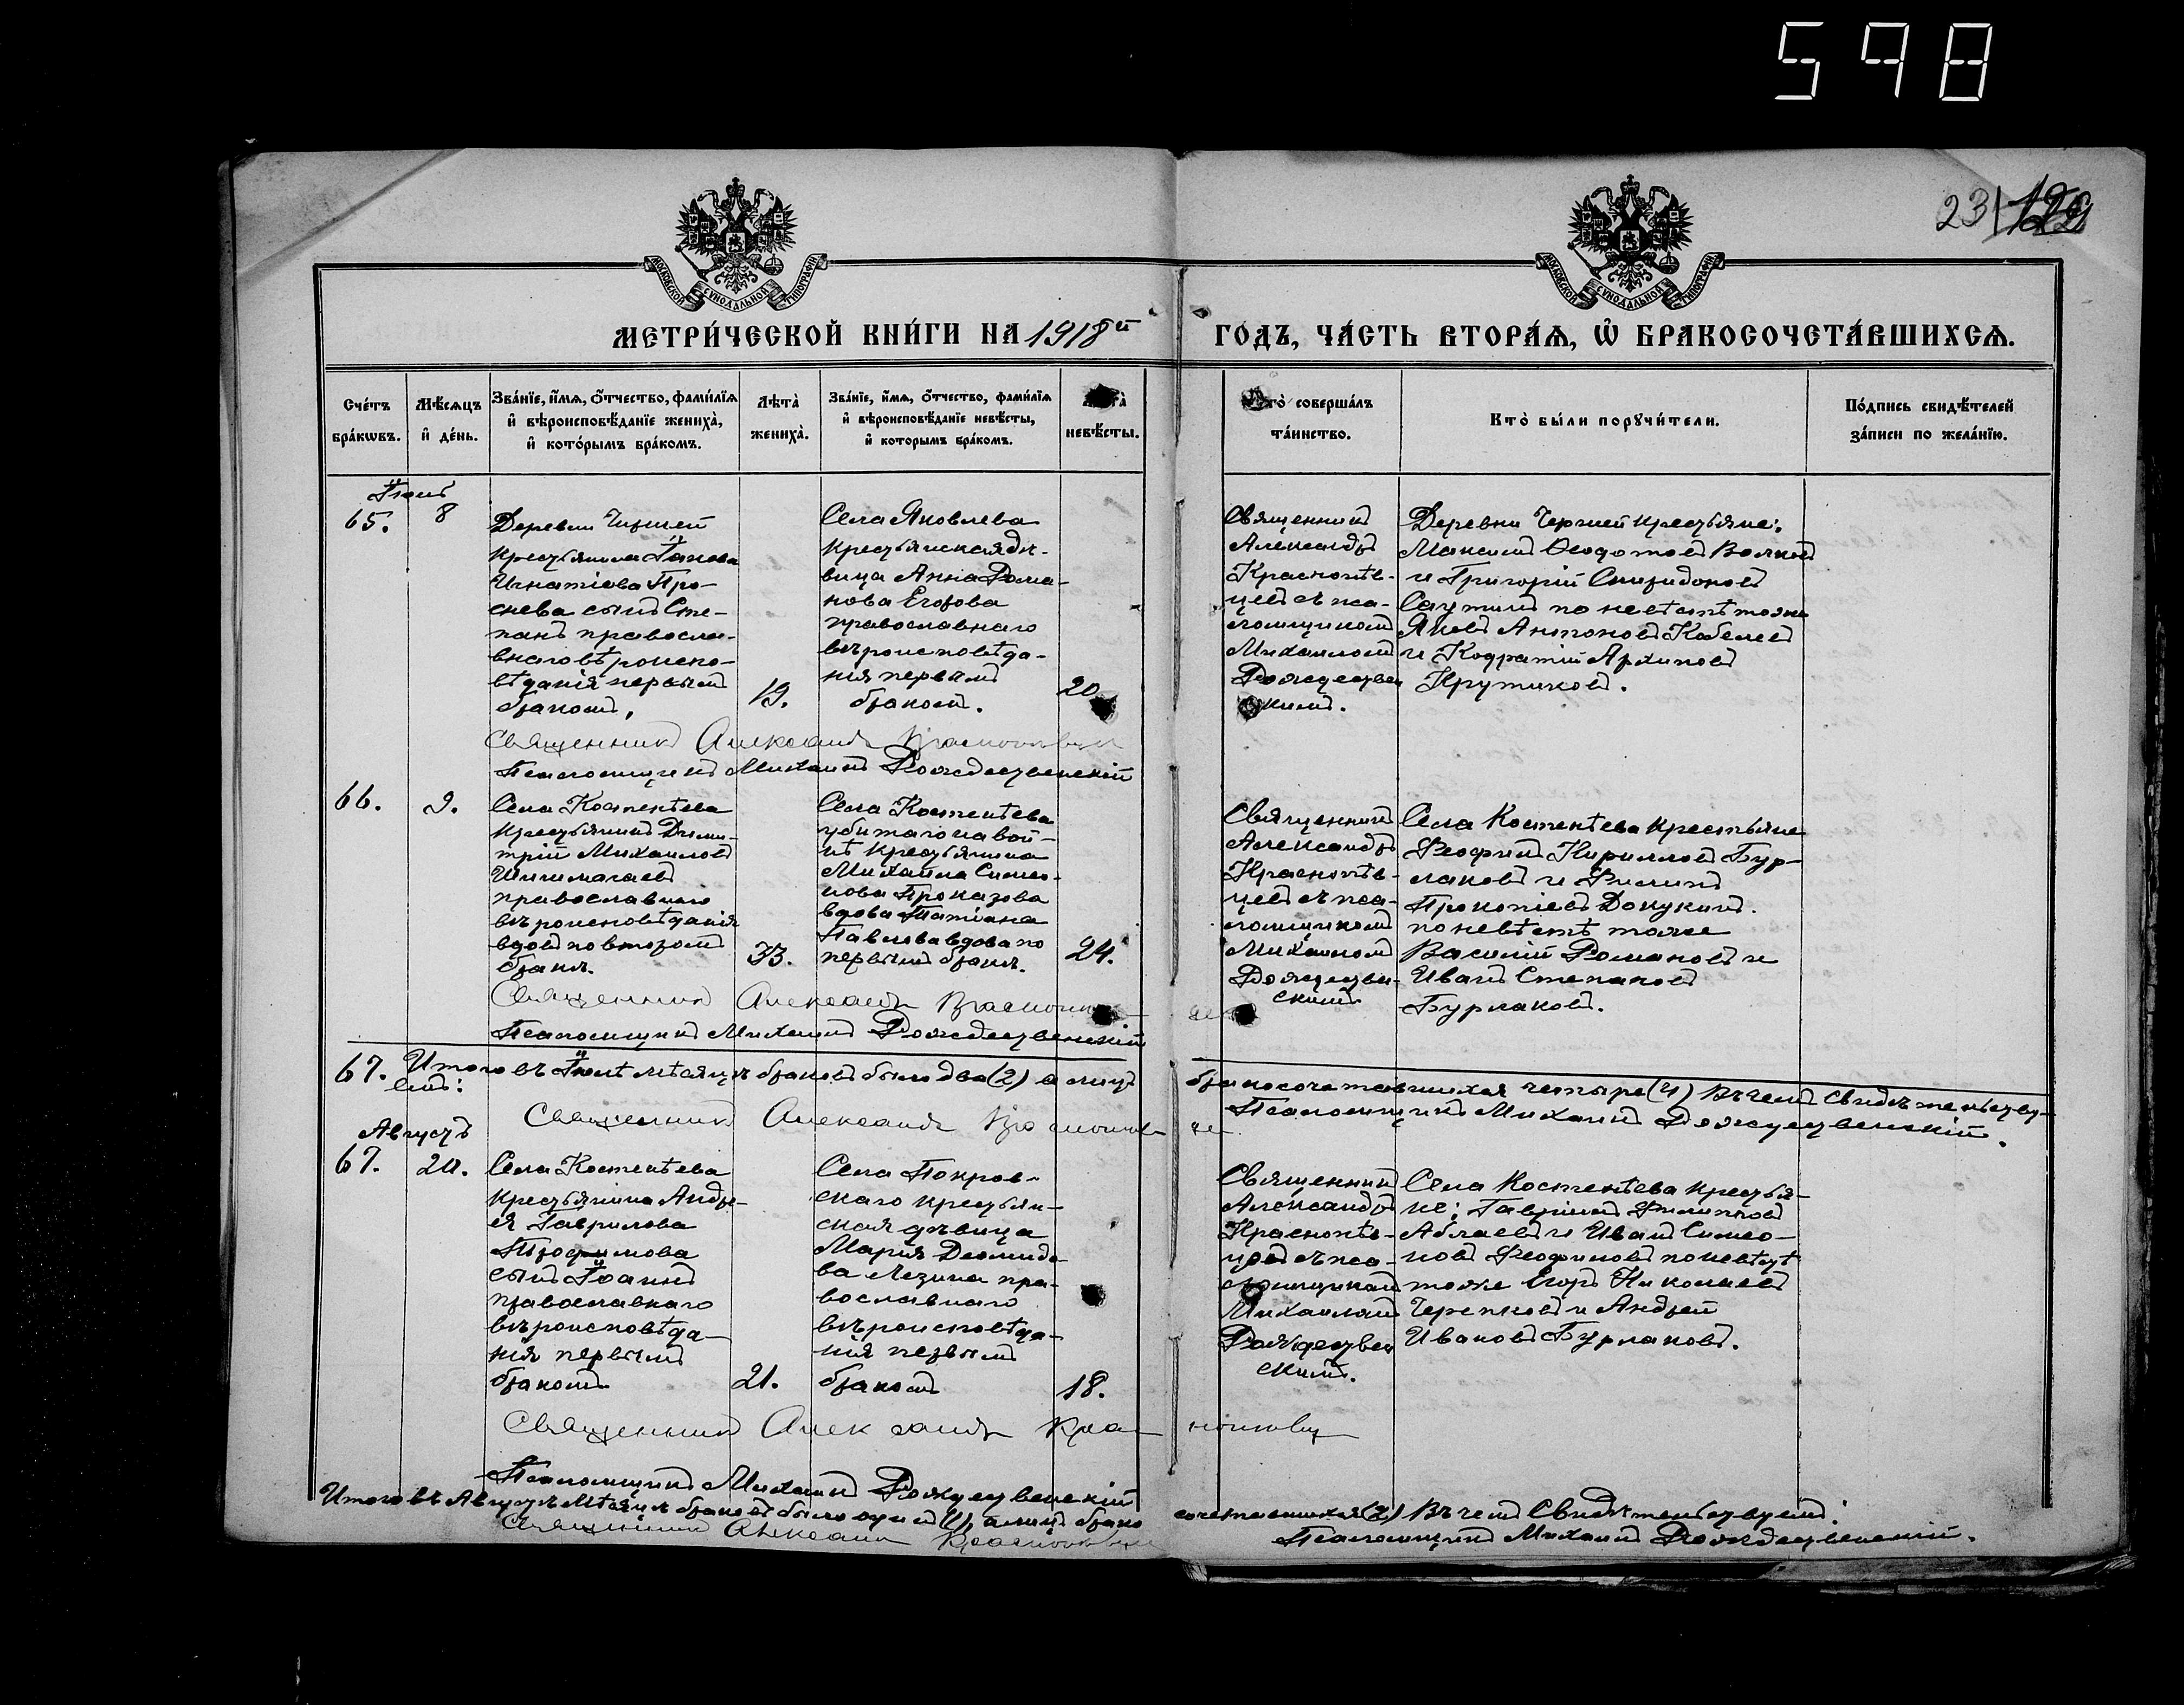 598
23 129
МОСКОВСКОЙ СУНОДАЛЬНОЙ ТИПОГРАФІИ
МОСКОВСКОЙ СУНОДАЛЬНОЙ ТИПОГРАФІИ
МЕТРИ́ЧЕСКОЙ КНИ́ГИ НА 1918й ГОДЪ, ЧА́СТЬ ВТОРА́Ѧ, Ѡ҆ БРАКОСОЧЕТА́ВШИХСѦ.
Сче́тъ бра́кѡвъ.
Мѣ́сѧцъ и҆ де́нь.
Зва́нїе, и҆́мѧ, ѻ҆́тчество, фами́лїѧ
и҆ вѣроисповѣ́данїе жениха̀,
и҆ кото́рымъ бра́комъ.
Лѣта̀ жениха̀.
Зва́нїе, и҆́мѧ, ѻ҆́тчество, фами́лїѧ
и҆ вѣроисповѣ́данїе невѣ́сты,
и҆ которымъ бра́комъ.
невѣ́сты.
соверша́лъ
та́инство.
Кто̀ бы́ли порꙋчи́тели.
По́дпись свидѣ́телей
за́писи по жела́нїю.
Іюль
65.
8
Деревни
крестьянина Іакова
Игнатіева Про-
снева сынъ Сте-
панъ православ-
внаго вѣроиспо-
вѣданія первымъ
бракомъ,
19.
Села Яковлева
крестьянская дѣ-
вица Анна Рома-
нова Егорова
православнаго
вѣроисповѣда-
нія первымъ
бракомъ.
20
Священникъ
Александръ
Краснопѣв-
цевъ съ пса-
ломщикомъ
Михаиломъ
Рождествен
скимъ.
Деревни крестьяне:
Максимъ Ѳедотовъ Волковъ
и Григорій Спиридоновъ
по невѣстѣ тоже
Яковъ Антоновъ Кобелевъ
и Кодратій Архиповъ
Крутиковъ.
Священникъ Александръ Краснопѣвцевъ
Псаломщикъ Михаилъ Рождественскій
66.
9.
Села Костенѣева
крестьянинъ Дими-
трій Михаиловъ
Шишмагаевъ
православнаго
вѣроисповѣданія
вдовъ повторомъ
бракѣ.
33.
Села Костенѣева
убитаго на вой-
нѣ крестьянина
Михаила Симео-
нова Проказова
вдова Татіана
Павлова вдова по
первымъ бракѣ.
24.
Священникъ
Александръ
Краснопѣв-
цевъ съ пса-
ломщикомъ
Михаиломъ
Рождествен-
скимъ
Села Костенѣева крестьяне
Кирилловъ Бур-
лаковъ и Филиппъ
Прокопіевъ Докукинъ.
по невѣстѣ тоже
Василій Романовъ и
Иванъ Степановъ
Бурлаковъ.
Священникъ Александръ Краснопѣвцевъ
Псаломщикъ Михаилъ Рождественскій
67. Итого въ Іюлѣ мѣсяцѣ браковъ было два (2) а лицъ бракосочетавшихся четыре (4) Въ чемъ свидѣтельству-
емъ:
Священникъ Александръ Краснопѣвцевъ
Псаломщикъ Михаилъ Рождественскій.
Августъ
67.
20.
Села Костенѣева
крестьянина Андре-
ея Гаврилова
Трофимова
сынъ Іоаннъ
православнаго
вѣроисповѣда-
нія первымъ
бракомъ
21.
Села Покров-
скаго крестьян-
ская дѣвица
Марія Деомидо-
ва Лезина пра-
вославнаго
вѣроисповѣда-
нія первымъ
бракомъ
18.
Священникъ
Александръ
Краснопѣв-
цевъ съ пса-
ломщикомъ
Михаиломъ
Рождествен
скимъ.
Села Костенѣева крестья-
не: Гавріилъ Филипповъ
Аблаевъ и Иванъ Симео-
новъ по невѣстѣ
тоже Егоръ Николаевъ
Черепковъ и Андрей
Ивановъ Бурлаковъ.
Священникъ Александръ Краснопѣвцевъ
Псаломщикъ Михаилъ Рождественскій
Итого въ Августѣ мѣсяцѣ браковъ было одинъ (1), а лицъ брако сочетавшихся (2) Въ чемъ Свидѣтельствуемъ:
Священникъ Александръ Краснопѣвцевъ
Псаломщикъ Михаилъ Рождественскій.